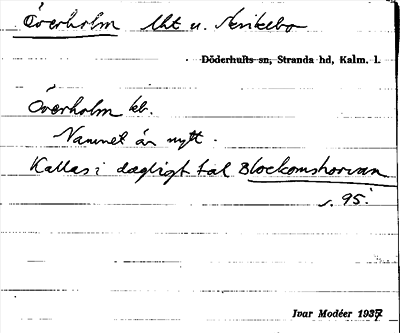 Överholm lht u. Åsikebo
Döderhults sn, Stranda hd, Kalm. l.
Överholm kb.
Namnet är nytt.
Kallas i dagligt tal Blockomshorvan
s. 95.
Ivar Modéer 1937